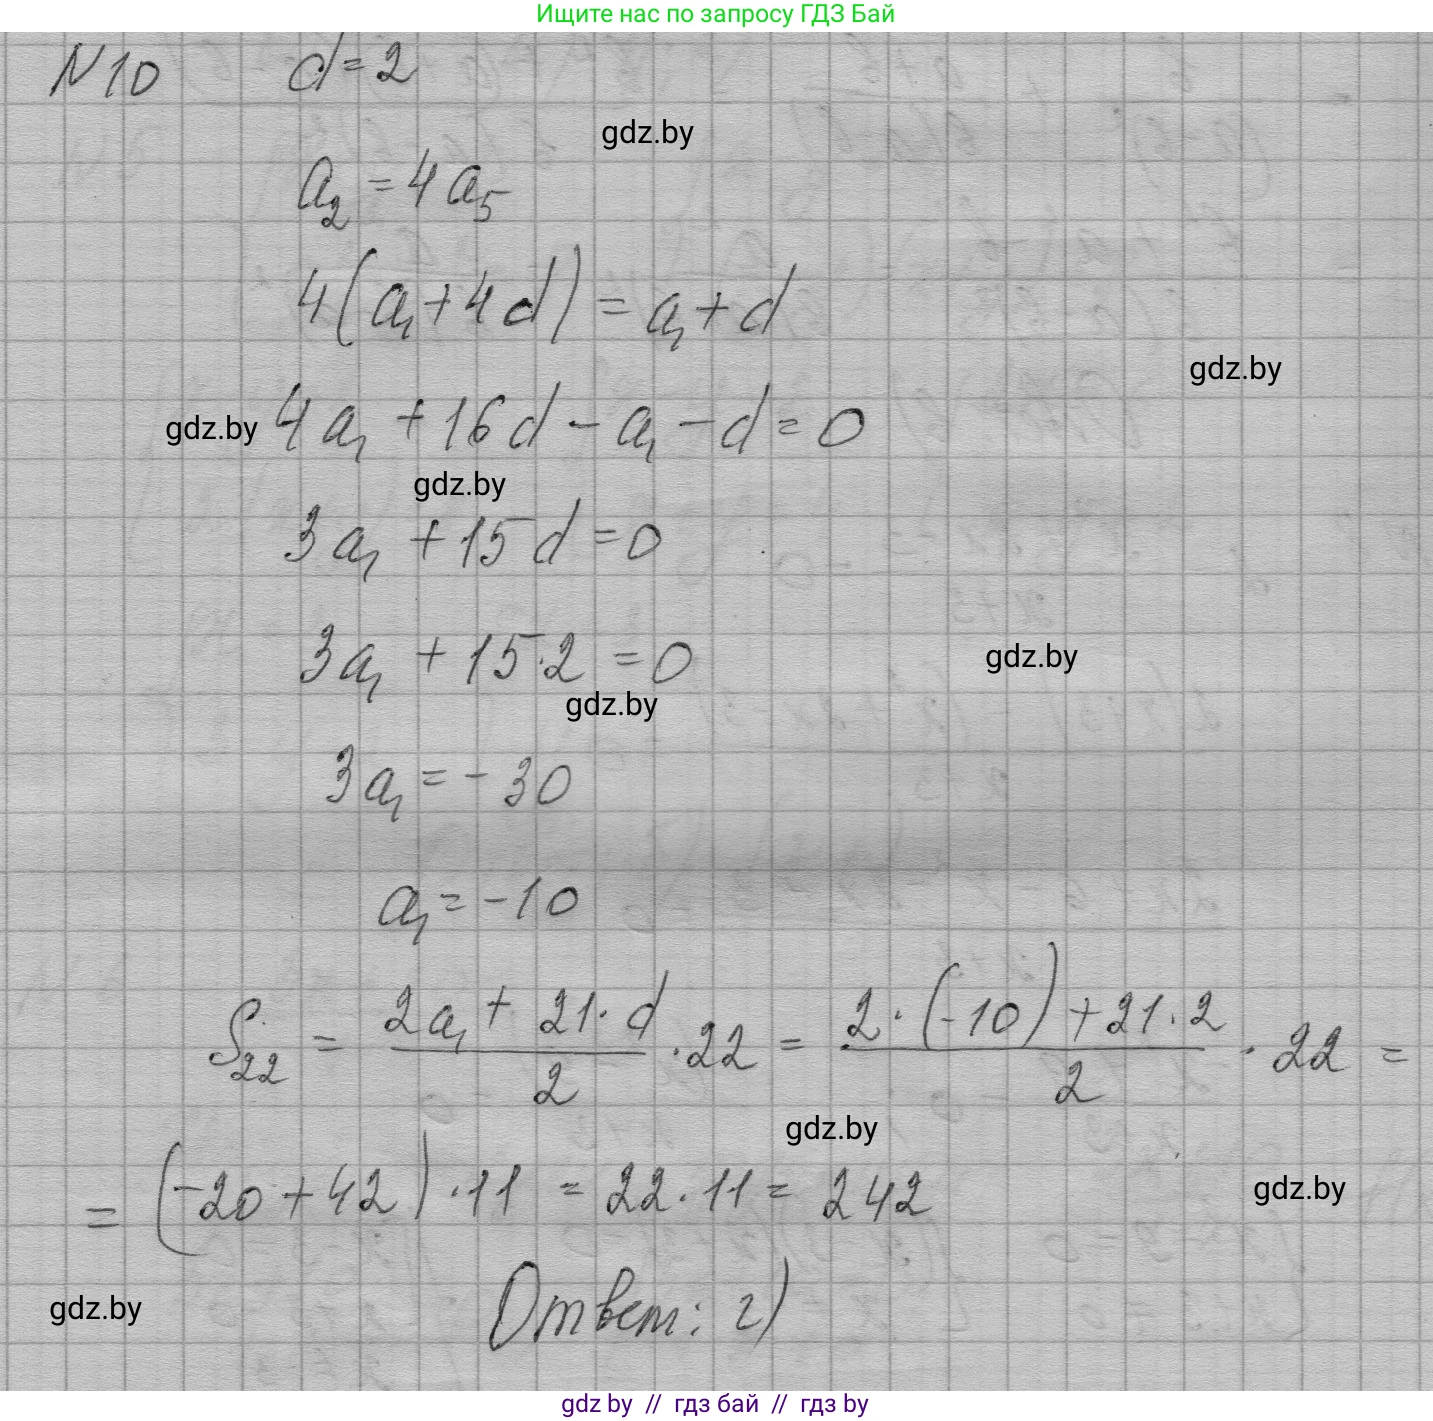 Ищите нас по запросу ГДЗ Бай
N10 d=2
gdz.by
a₂ = 4a₅
4(a₁+4d) = a₁+d
gdz.by
gdz.by 4a₁ + 16d - a₁ - d = 0
gdz.by
3a₁ + 15d = 0
3a₁ + 15·2 = 0
gdz.by
gdz.by
3a₁ = -30
a₁ = -10
S₂₂ = (2a₁ + 21·d)/2 · 22 = (2·(-10)+21·2)/2 · 22 =
gdz.by
= (-20+42)·11 = 22·11 = 242
gdz.by
Ответ: г)
gdz.by
gdz by // гдз бай // гдз by